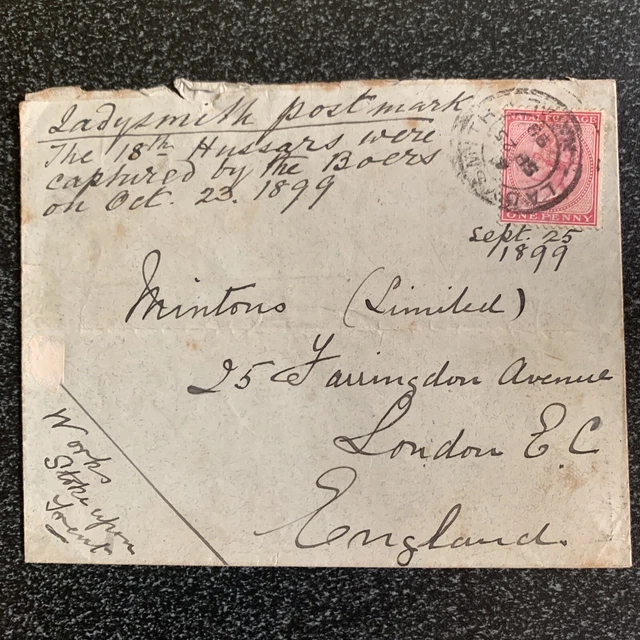 Ladysmith postmark
The 18th Hussars were
captured by the Boers
on Oct. 23. 1899
POSTAGE
ONE PENNY
Sept 25
1899
Mintons (Limited)
25 Farringdon Avenue
London E.C
England.
Works
Stoke upon
Trent